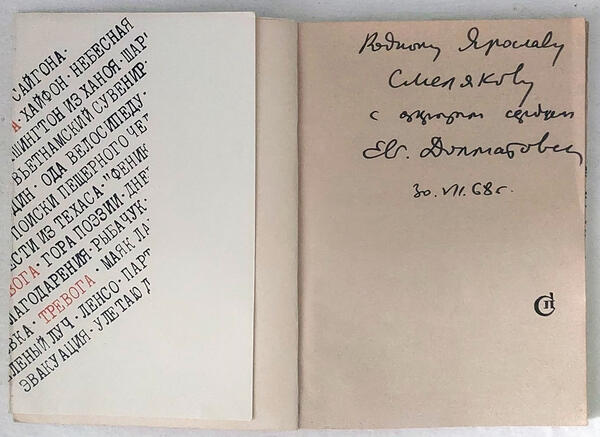 САЙГОНА·
А·ХАЙФОН·НЕБЕСНАЯ
ШИНГТОН ИЗ ХАНОЯ·ШАР
ВЬЕТНАМСКИЙ СУВЕНИР
ДИН·ОДА ВЕЛОСИПЕДУ·
ПОИСКИ ПЕЩЕРНОГО ЧЕЛ
ЕСТИ ИЗ ТЕХАСА·"ФЕНИК
ВОГА·ГОРА ПОЭЗИИ·ДНЕ
ЛАГОДАРЕНИЯ·РЫБАЧУК·
ВКА·ТРЕВОГА·МАЯК ЛА
ЛЕНЫЙ ЛУЧ·ЛЕНСО·ПАРТ
ЭВАКУАЦИЯ·УЛЕТАЮ Д
Родному Ярославу
Смелякову
с открытым сердцем
Евг. Долматовский
30.VII.68г.
СП